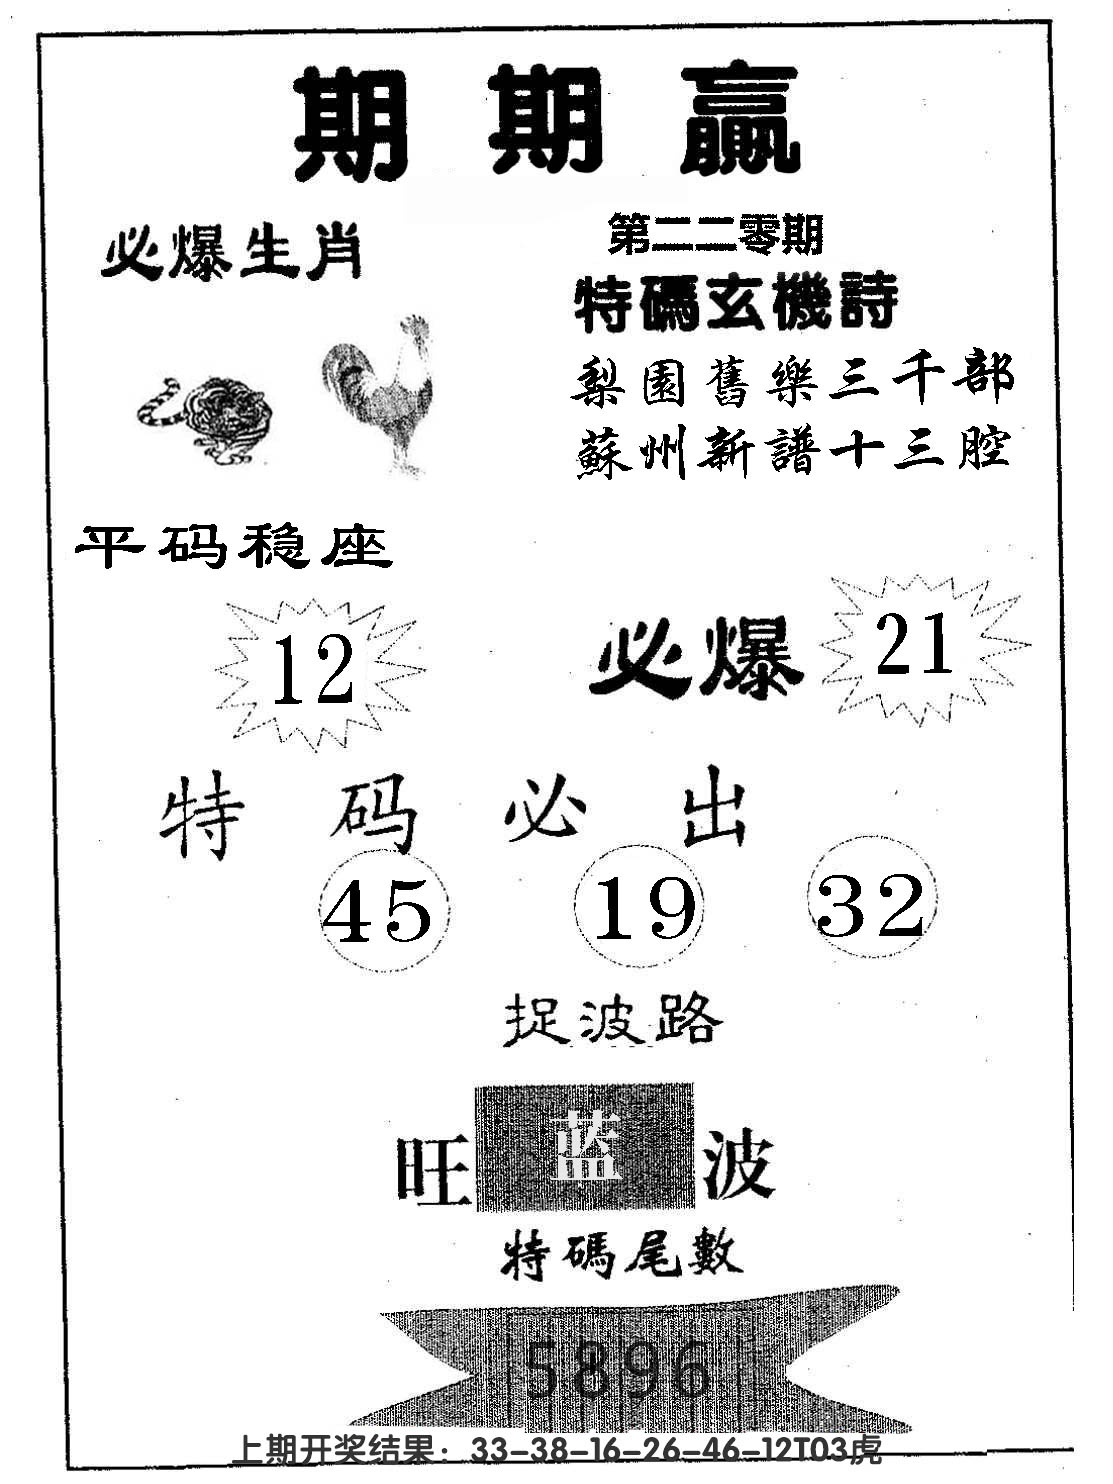 期期赢
必爆生肖
第二二零期
特碼玄機詩
梨園舊樂三千部
蘇州新譜十三腔
平码稳座
12
必爆
21
特码必出
45 19 32
捉波路
旺蓝波
特碼尾數
5896
上期开奖结果：33-38-16-26-46-12T03虎